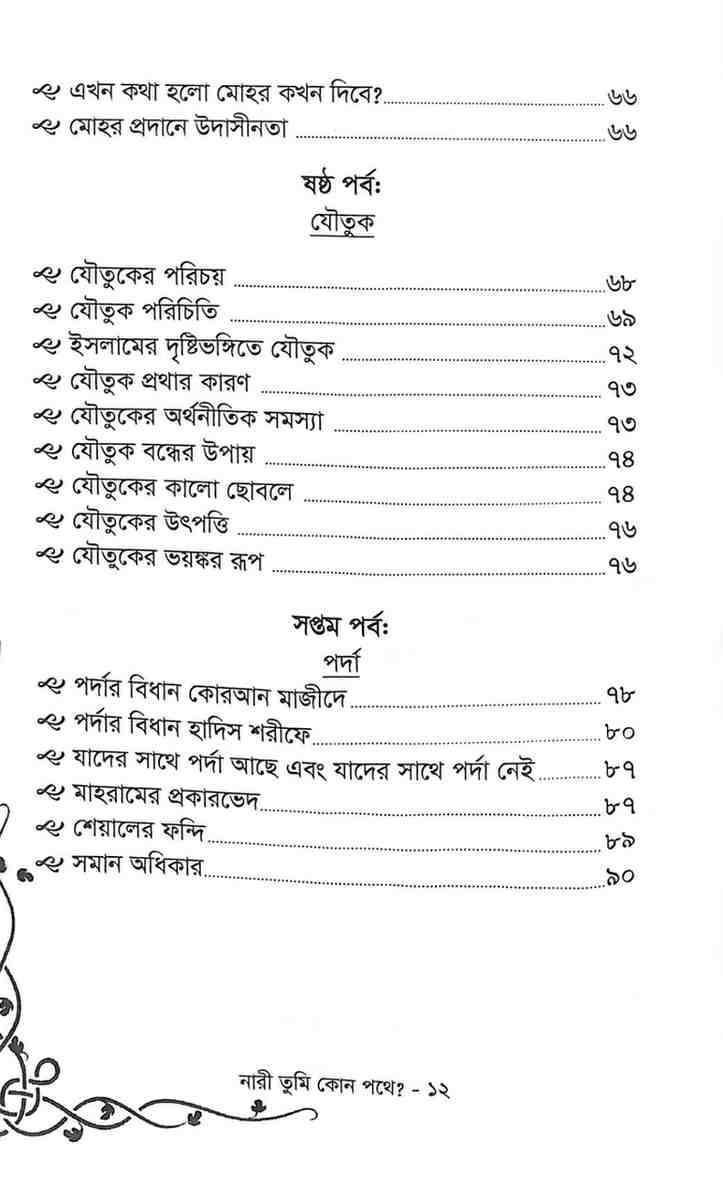 এখন কথা হলো মোহর কখন দিবে?..........৬৬
মোহর প্রদানে উদাসীনতা ..........৬৬
ষষ্ঠ পর্ব:
যৌতুক
যৌতুকের পরিচয় ..........৬৮
যৌতুক পরিচিতি ..........৬৯
ইসলামের দৃষ্টিভঙ্গিতে যৌতুক ..........৭২
যৌতুক প্রথার কারণ ..........৭৩
যৌতুকের অর্থনীতিক সমস্যা ..........৭৩
যৌতুক বন্ধের উপায় ..........৭৪
যৌতুকের কালো ছোবলে ..........৭৪
যৌতুকের উৎপত্তি ..........৭৬
যৌতুকের ভয়ঙ্কর রূপ ..........৭৬
সপ্তম পর্ব:
পর্দা
পর্দার বিধান কোরআন মাজীদে..........৭৮
পর্দার বিধান হাদিস শরীফে..........৮০
যাদের সাথে পর্দা আছে এবং যাদের সাথে পর্দা নেই..........৮৭
মাহরামের প্রকারভেদ..........৮৭
শেয়ালের ফন্দি..........৮৯
সমান অধিকার..........৯০
নারী তুমি কোন পথে? - ১২